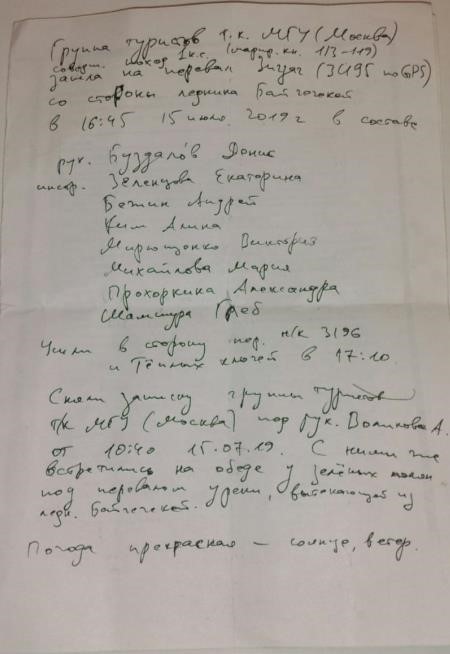 Группа туристов т.к. МГУ (Москва)
соверш. поход 1 к.с. (маршр. кн. 1/3-119)
зашла на перевал Зигзаг (3495 по GPS)
со стороны ледника Байчечекей
в 16:45 15 июля 2019 г в составе
рук. Буздалов Денис
инстр. Зеленцова Екатерина
Бежин Андрей
Ким Алина
Мирющенко Виктория
Михайлова Мария
Прохоркина Александра
Шамшура Глеб
Ушли в сторону пер. н/к 3196
и Тёплых ключей в 17:10.
Сняли записку группы туристов
т/к МГУ (Москва) под рук. Воликова А.
от 10:40 15.07.19. С ними же
встретились на обеде у зелёных полян
под перевалом у реки, вытекающей из
ледн. Байчечекей.
Погода прекрасная – солнце, ветер.